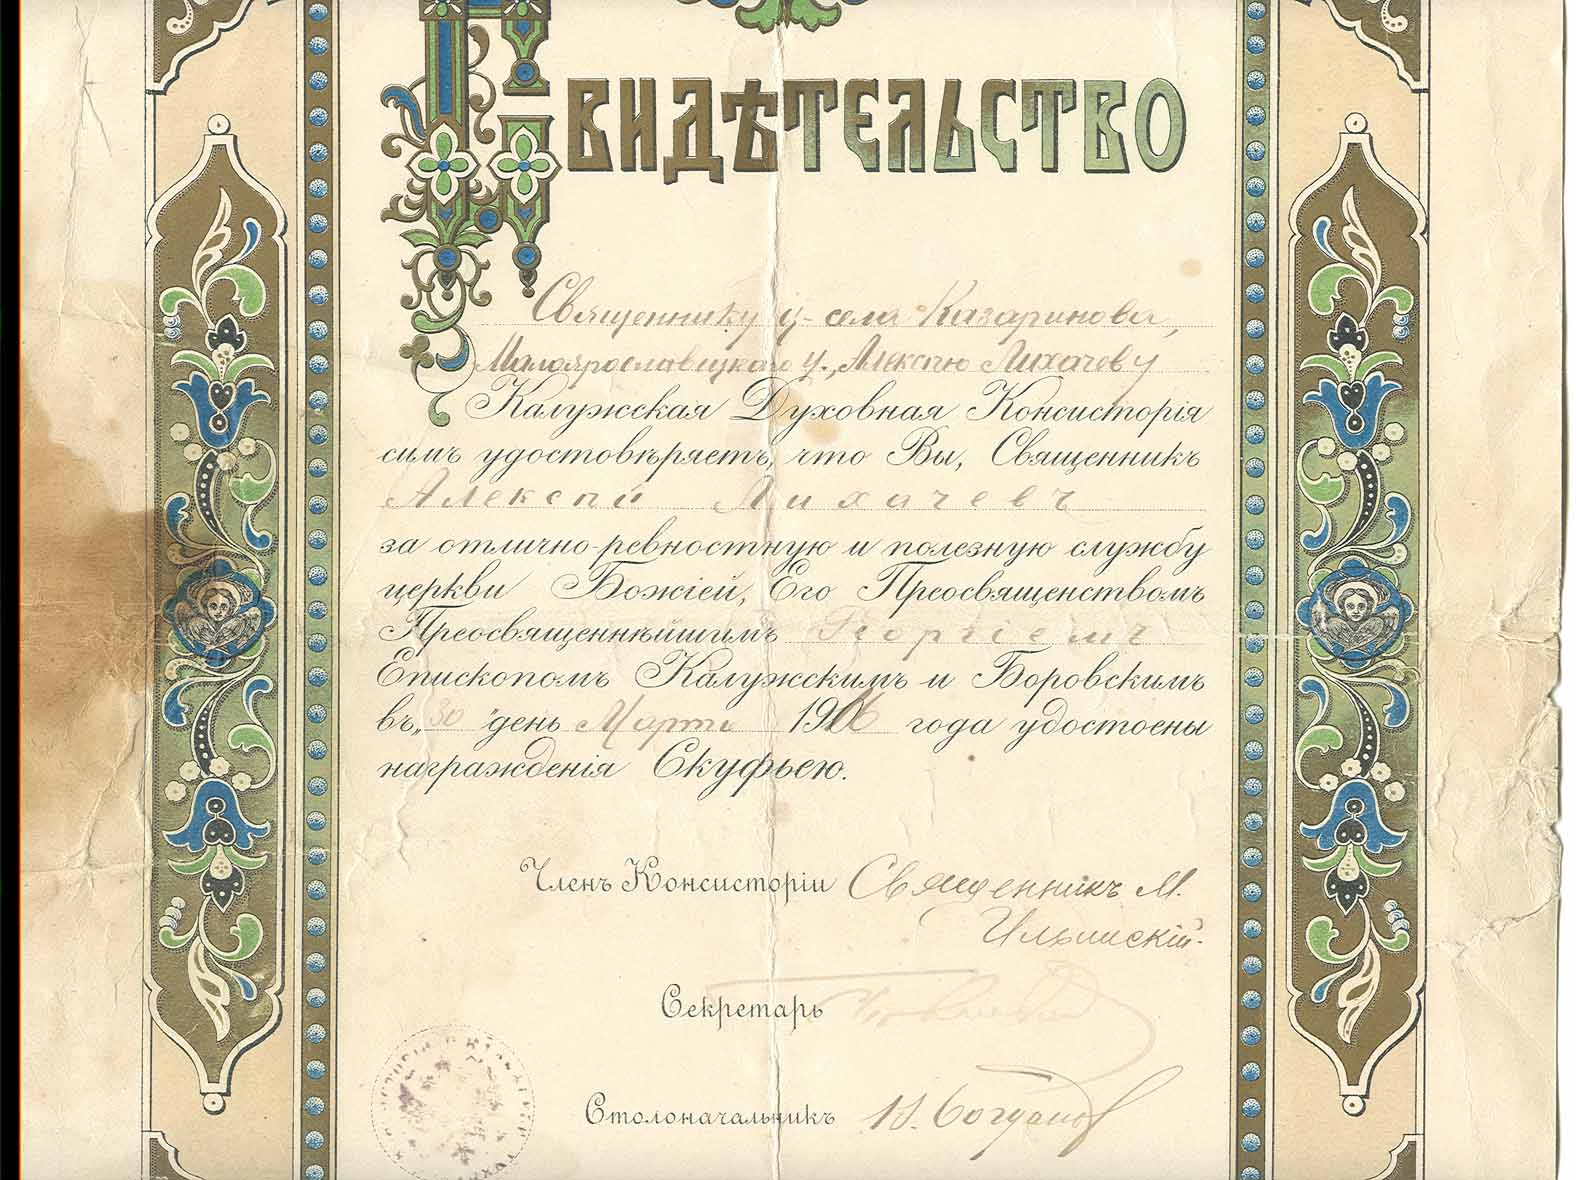 Свидѣтельство
Священнику ц. села Казаринова,
Малоярославецкаго у., Алексѣю Лихачеву
Калужская Духовная Консисторія
симъ удостовѣряетъ, что Вы, Священникъ
Алексѣй Лихачевъ
за отлично-ревностную и полезную службу
церкви Божіей, Его Преосвященствомъ
Преосвященнѣйшимъ Георгіемъ
Епископомъ Калужскимъ и Боровскимъ
въ „30" день Марта 1916 года удостоены
награжденія Скуфьею.
Членъ Консисторіи Священникъ М.
Ильинскій.
Секретарь
Столоначальникъ Н. Богданов